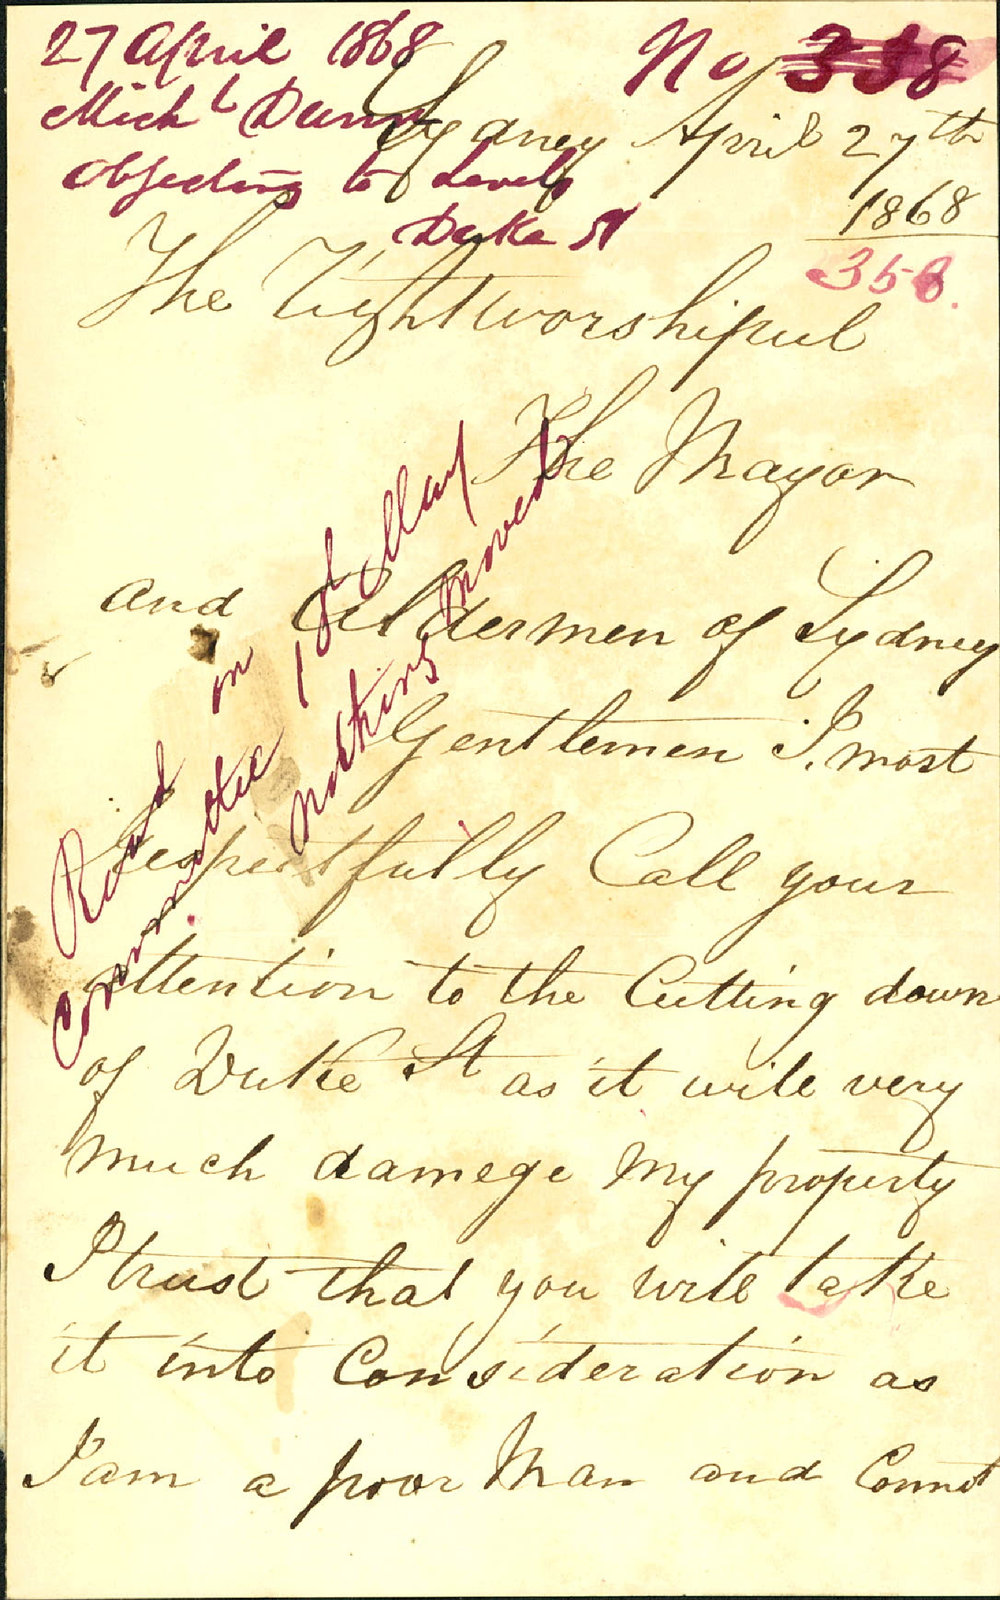 27 April 1868
Mich<sup>l</sup> Dunn
Objecting to Levels
Duke St
No 338
358.
Sydney April 27th
1868
The Rightworshipul
The Mayor
and Aldermen of Sydney
Gentlemen I. most
Respectfully Call your
attention to the Cutting down
of Duke St as it wile very
much damege My property
I trust that you wile take
it into Consideration as
I am a poor Man and Connot
Read on
Committee 18t May
nothing moved